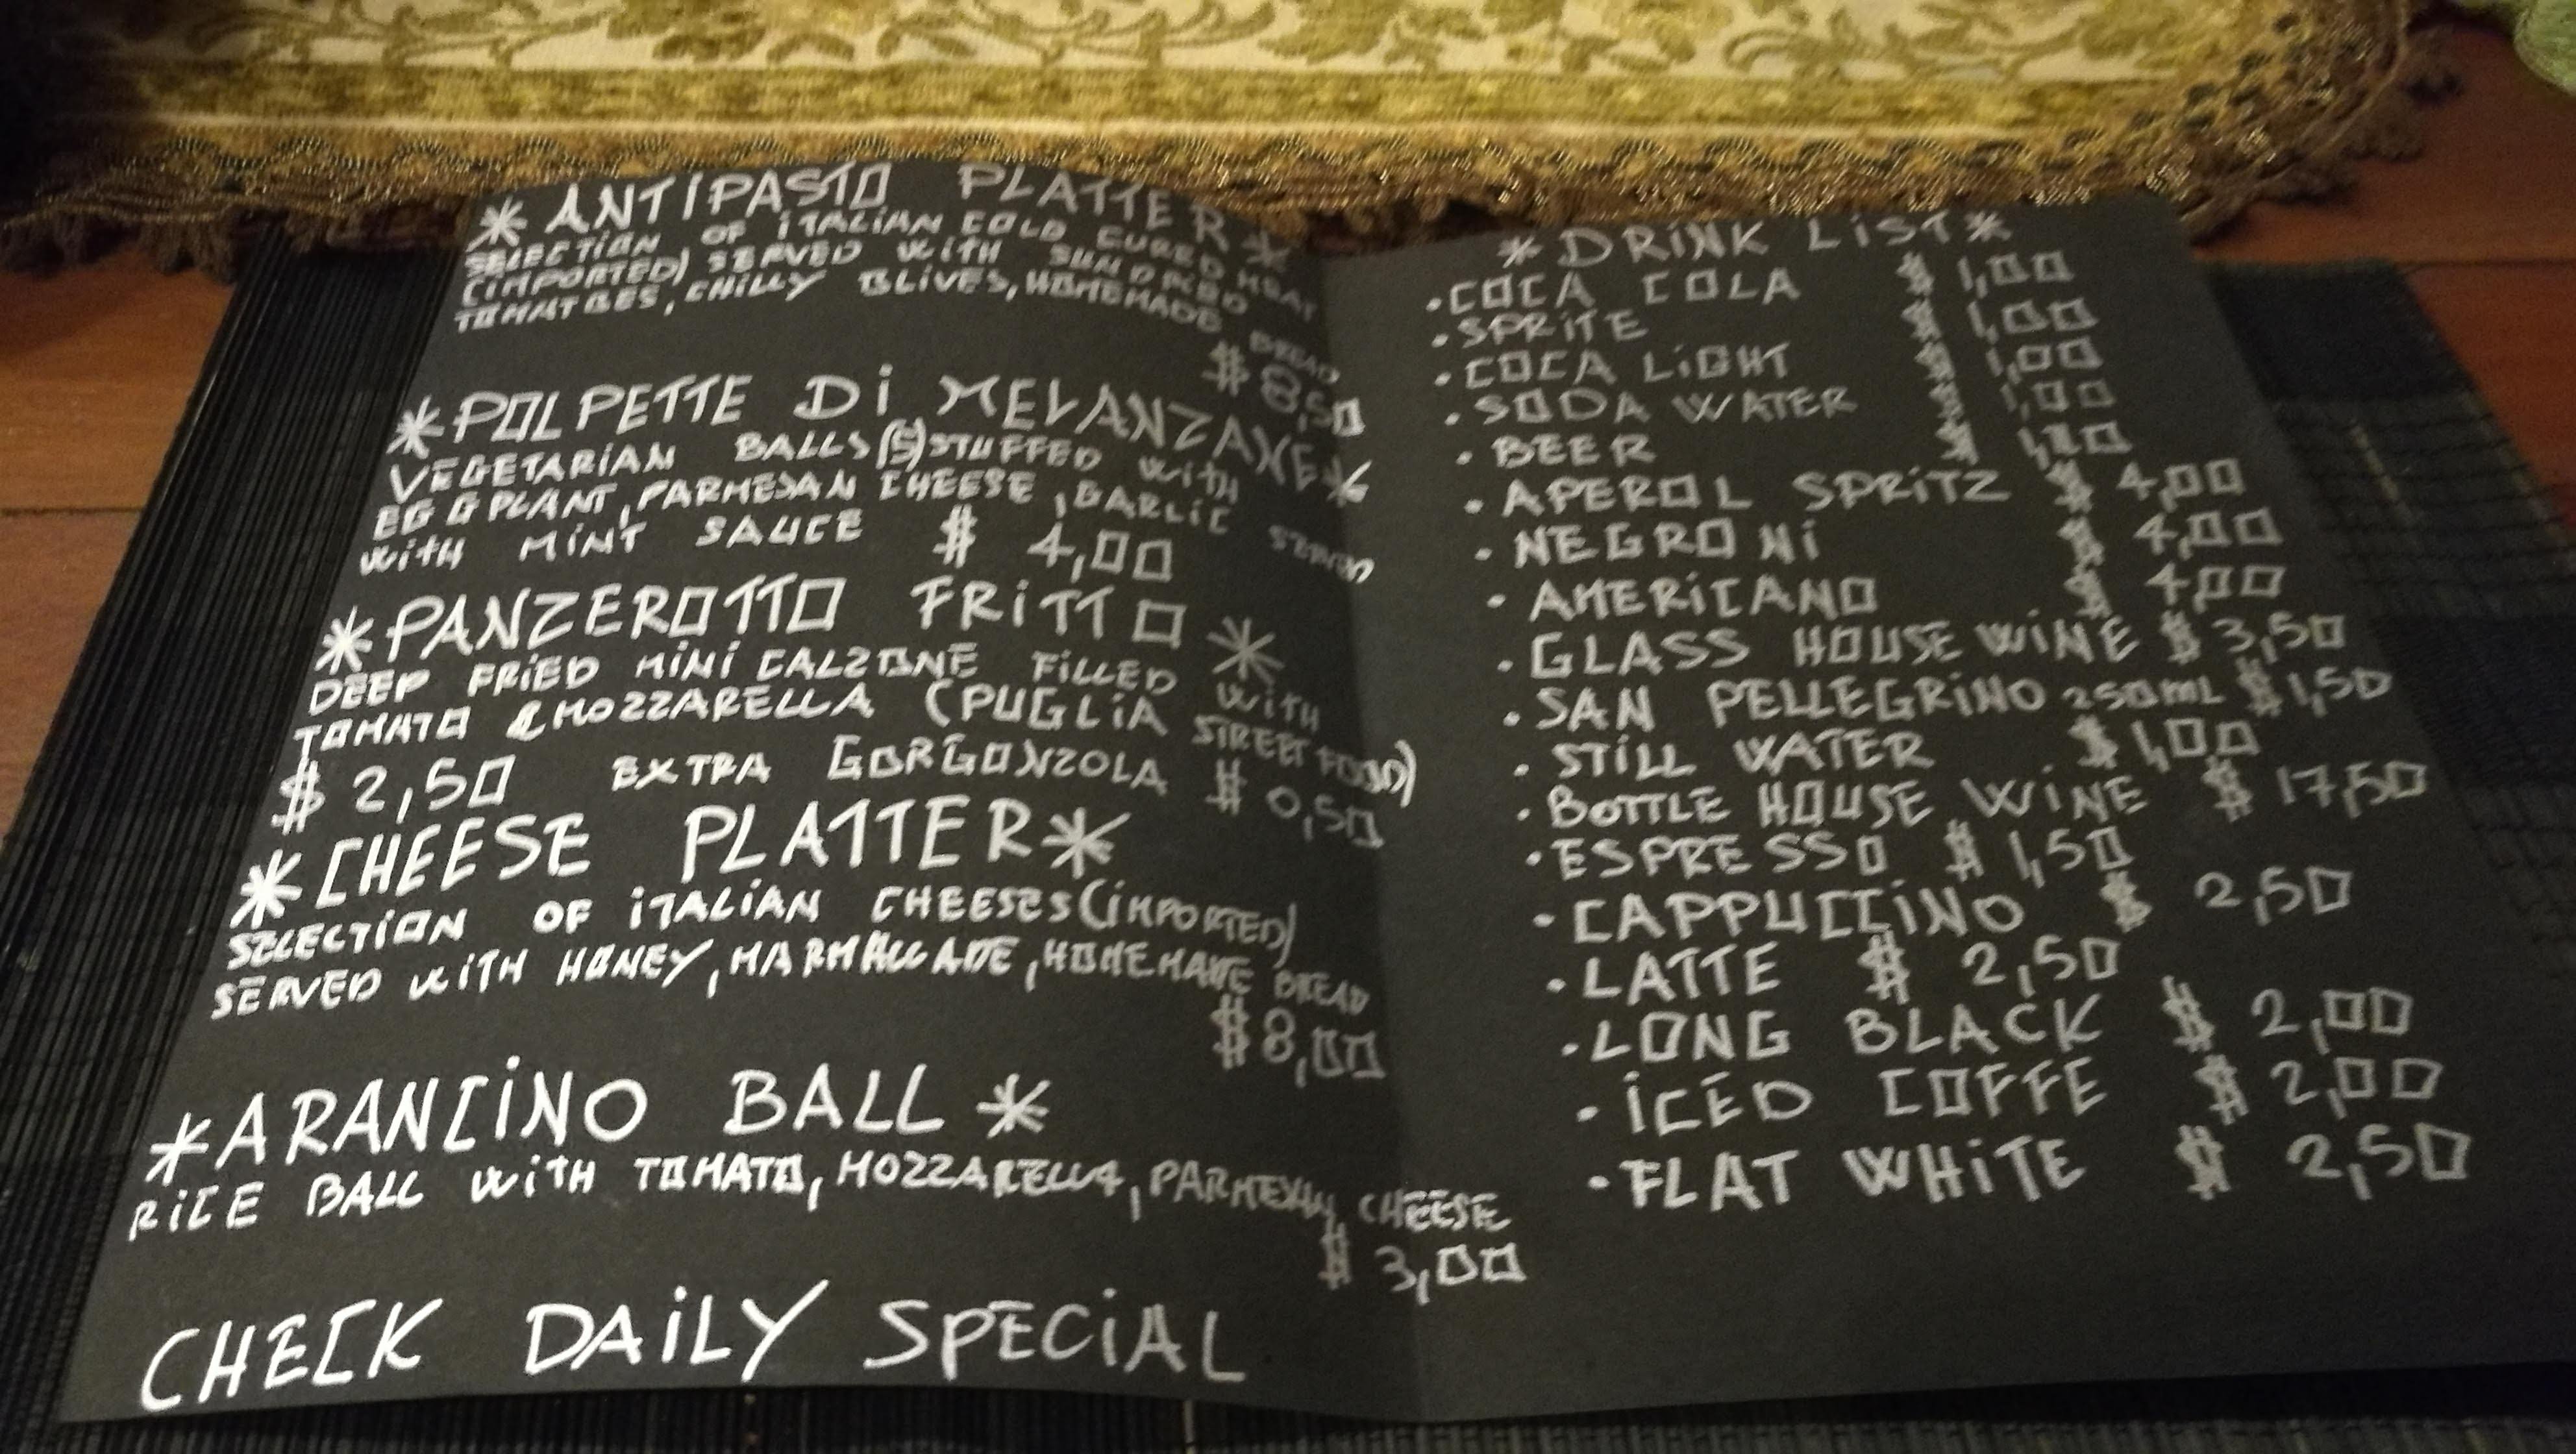 * ANTIPASTO PLATTER *
SELECTION OF ITALIAN COLD CURED MEAT
(IMPORTED) SERVED WITH SUNDRIED
TOMATOES, CHILLY OLIVES, HOMEMADE BREAD
$ 8,50
* POLPETTE DI MELANZANE *
VEGETARIAN BALLS (5) STUFFED WITH
EGGPLANT, PARMESAN CHEESE, GARLIC SERVED
WITH MINT SAUCE $ 4,00
* PANZEROTTO FRITTO *
DEEP FRIED MINI CALZONE FILLED WITH
TOMATO & MOZZARELLA (PUGLIA STREET FOOD)
$ 2,50 EXTRA GORGONZOLA $ 0,50
* CHEESE PLATTER *
SELECTION OF ITALIAN CHEESES (IMPORTED)
SERVED WITH HONEY, MARMALLADE, HOMEMADE BREAD
$ 8,00
* ARANCINO BALL *
RICE BALL WITH TOMATO, MOZZARELLA, CHEESE
$ 3,00
CHECK DAILY SPECIAL
* DRINK LIST *
• COCA COLA $ 1,00
• SPRITE $ 1,00
• COCA LIGHT $ 1,00
• SODA WATER $ 1,00
• BEER $
• APEROL SPRITZ $ 4,00
• NEGRONI $ 4,00
• AMERICANO $ 4,00
• GLASS HOUSE WINE $ 3,50
• SAN PELLEGRINO 250mL $ 1,50
• STILL WATER $ 1,00
• BOTTLE HOUSE WINE $ 17,50
• ESPRESSO $ 1,50
• CAPPUCCINO $ 2,50
• LATTE $ 2,50
• LONG BLACK $ 2,00
• ICED COFFE $ 2,00
• FLAT WHITE $ 2,50